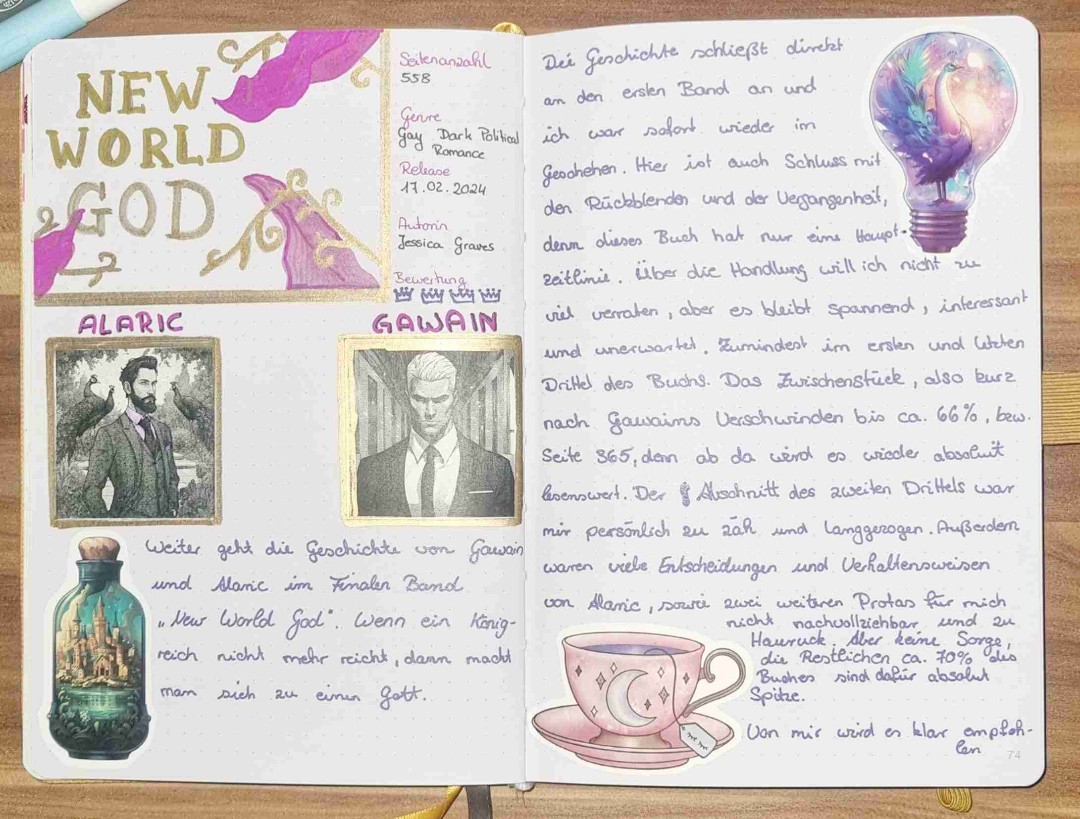 NEW
WORLD
GOD
Seitenanzahl
558
Genre
Gay Dark Political
Romance
Release
17.02.2024
Autorin
Jessica Graves
Bewertung
ALARIC
GAWAIN
Weiter geht die Geschichte von Gawain
und Alaric im Finalen Band
„New World God“. Wenn ein König-
reich nicht mehr reicht, dann macht
man sich zu einen Gott.
Die Geschichte schließt direkt
an den ersten Band an und
ich war sofort wieder im
Geschehen. Hier ist auch Schluss mit
den Rückblenden und der Vergangenheit,
denn dieses Buch hat nur eine Haupt-
zeitlinie. Über die Handlung will ich nicht zu
viel verraten, aber es bleibt spannend, interessant
und unerwartet. Zumindest im ersten und letzten
Drittel des Buchs. Das Zwischenstück, also kurz
nach Gawains Verschwinden bis ca. 66%, bzw.
Seite 365, denn ab da wird es wieder absolut
lesenswert. Der Abschnitt des zweiten Drittels war
mir persönlich zu zäh und langgezogen. Außerdem
waren viele Entscheidungen und Verhaltensweisen
von Alaric, sowie zwei weiteren Protas für mich
nicht nachvollziehbar und zu
Hauruck. Aber keine Sorge,
die Restlichen ca. 70% des
Buches sind dafür absolut
Spitze.
Von mir wird es klar empfoh-
len
74